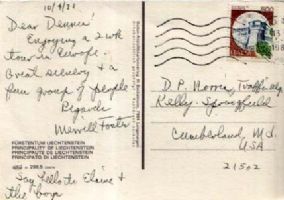 10/9/81
Dear Dennis'
Enjoying a 2 wk
tour in Europe.
Great scenery & a
fun group of people
Regards
Merrill Foster
FÜRSTENTUM LIECHTENSTEIN
PRINCIPALITY OF LIECHTENSTEIN
PRINCIPAUTE DE LIECHTENSTEIN
PRINCIPATO DI LIECHTENSTEIN
Say Hello to Elaine &
the boys
D.P. Norris,
Kelly-Springfield
Cumberland, Md.
USA
21502